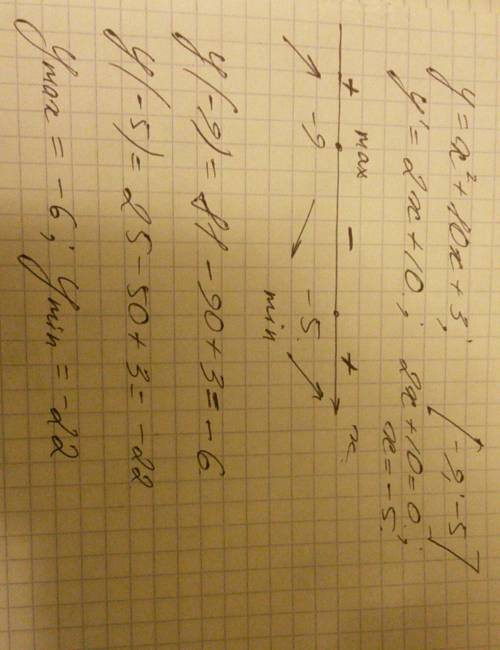 y = x² + 10x + 3; [-9; -5]
y' = 2x + 10; 2x + 10 = 0;
x = -5.
+ max - + x
-9 -5.
min
y(-9) = 81 - 90 + 3 = -6
y(-5) = 25 - 50 + 3 = -22
y max = -6; y min = -22